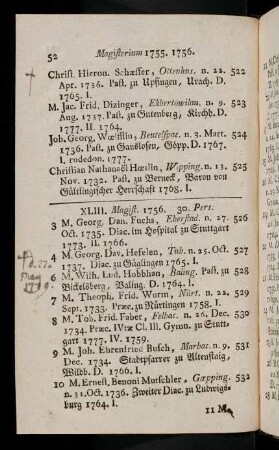 52 Magisterium 1755. 1756.
Christ. Hieron. Schæffer, Ottenhus. n. 22. 522
Apr. 1736. Past. zu Upfingen, Urach. D.
1765. I.
M. Jac. Frid. Dizinger, Ekbertswilan. n. 9. 523
Aug. 1737. Past. zu Gutenberg, Kirchh. D.
1777. II. 1764.
Joh. Georg. Wœlfflin, Beutelspac. n. 3. Mart. 524
1736. Past. zu Ganslosen, Göpp. D. 1767.
I. rudedon. 1777.
Christian Nathanaël Hœslin, Wipping. n. 13. 525
Nov. 1732. Past. zu Berneck, Baron von
Gültlingischer Herrschaft 1768. I.
XLIII. Magist. 1756. 30. Pers.
3 M. Georg. Dan. Fuchs, Eberstad. n. 27. 526
Oct. 1735. Diac. im Hospital zu Stuttgart
1773. II. 1766.
4 M. Georg. Dav. Hefelen, Tub. n. 25. Oct. 527
1737. Diac. zu Güglingen 1765. I.
6 M. Wilh. Lud. Hobbhan, Baling. Past. zu 528
Bickelsberg, Baling. D. 1764. I.
7 M. Theoph. Frid. Wurm, Nürt. n. 22. 529
Sept. 1733. Præc. zu Nürtingen 1758. I.
8 M. Tob. Frid. Faber, Felbac. n. 26. Dec. 530
1734. Præc. IVræ Cl. III. Gymn. zu Stutt-
gart 1777. IV. 1759.
9 M. Joh. Ehrenfried Busch, Marbac. n. 9. 531
Dec. 1734. Stadtpfarrer zu Altenstaig,
Wildb. D. 1766. I.
10 M. Ernest. Benoni Mutschler, Gœpping. 532
n. 31. Oct. 1736. Zweiter Diac. zu Ludwigs-
burg 1764. I.
11 M.